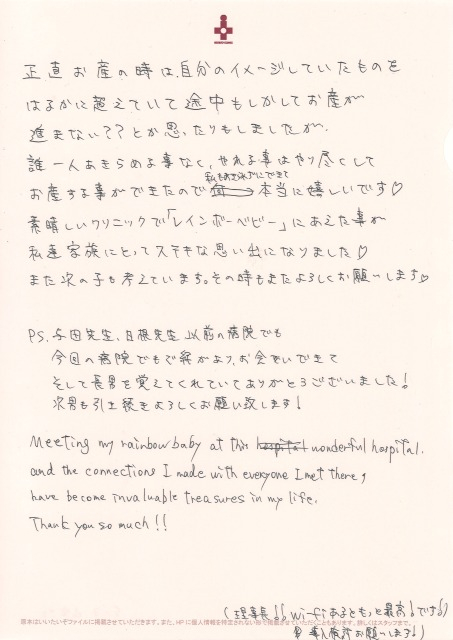 正直お産の時は、自分のイメージしていたものを
はるかに超えていて途中もしかしてお産が
進まない??とか思ったりもしましたが、
誰一人あきらめる事なく、やれる事はやり尽くして
私もあきらめずにできて
お産する事ができたので 本当に嬉しいです♡
素晴しいクリニックで「レインボーベビー」にあえた事が
私達家族にとってステキな思い出になりました♡
また次の子も考えています。その時もまたよろしくお願いします♡
PS. 与田先生、白根先生 以前の病院でも
今回の病院でもご縁があり、お会いできて
そして長男を覚えてくれていてありがとうございました!
次男も引き続きよろしくお願い致します!
Meeting my rainbow baby at this hospital wonderful hospital.
and the connections I made with everyone I met there,
have become invaluable treasures in my life.
Thank you so much!!
(理事長!! wi-fiあるともっと最高!です!!)
原本はいいたいそファイルに掲載させていただきます。また、HPに個人情報を特定されない形で掲載させていただくこともあります。詳しくはスタッフまで。
お願いします!)